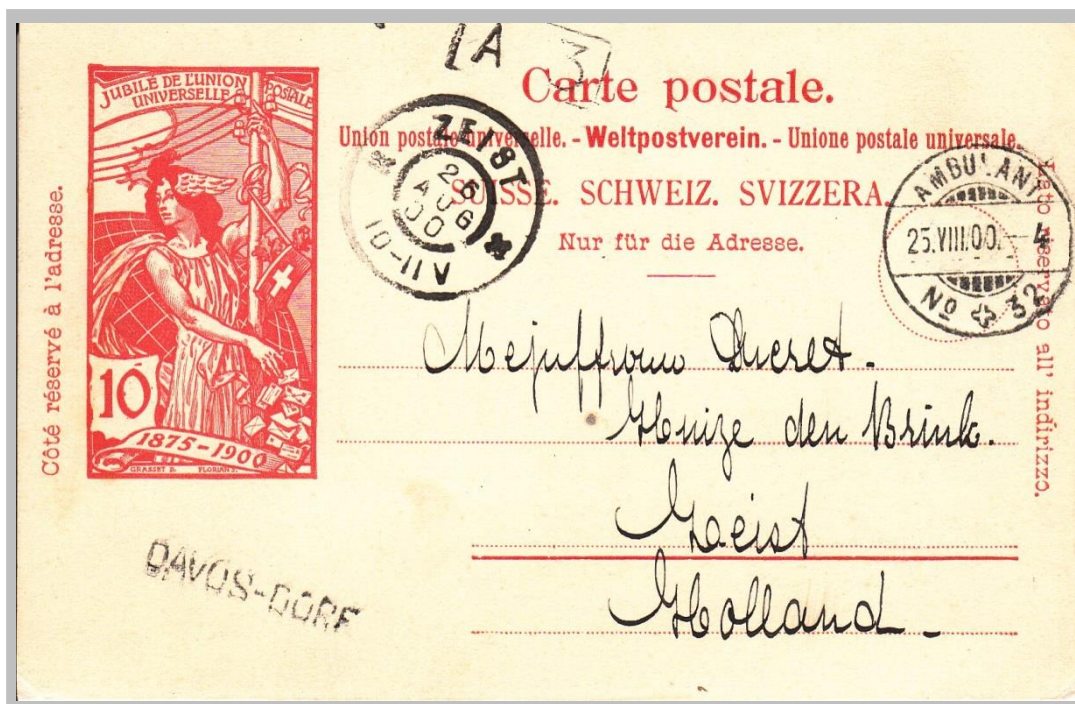 1A 31
Carte postale.
Union postale universelle. - Weltpostverein. - Unione postale universale.
SUISSE. SCHWEIZ. SVIZZERA.
Nur für die Adresse.
Côté réservé à l'adresse.
Lato riservato all' indirizzo.
JUBILÉ DE L'UNION
POSTALE
UNIVERSELLE
10
1875-1900
GRASSET D. FLORIAN S.
ZEIST
26
AUG
00
10-11V
AMBULANT
25.VIII.00.-4
No 32
Mejuffrouw Ducret.
Huize den Brink.
Zeist
Holland.
DAVOS-DORF